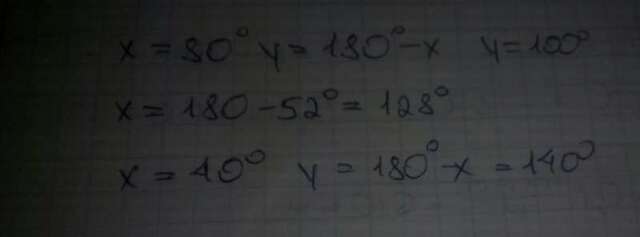 x = 80° y = 180° - x y = 100°
x = 180 - 52° = 128°
x = 40° y = 180° - x = 140°